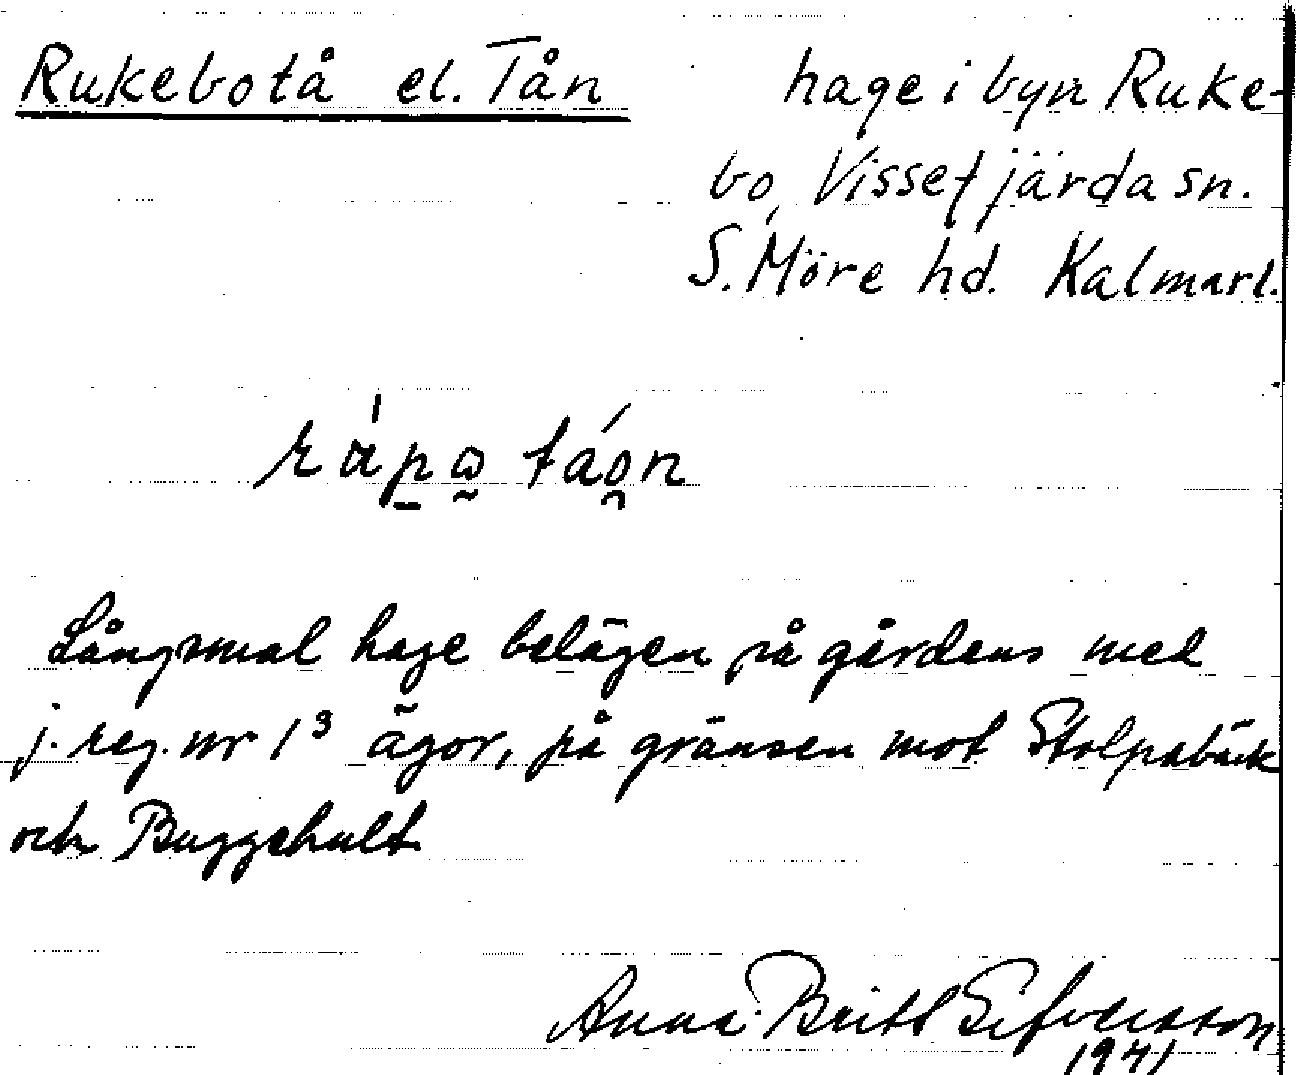 Rukebotå el. Tån hage i byn Ruke-
bo, Vissefjärda sn.
S. Möre hd. Kalmarl.
Långsmal hage belägen på gårdens med
j. reg. nr 1³ ägor, på gränsen mot Stolpabäck
och Buggehult
Anna-Britt Sifversson
1941